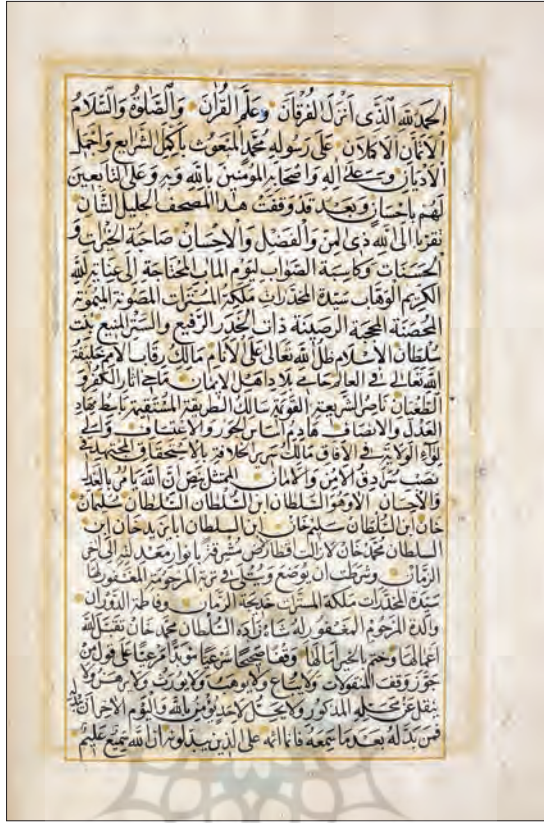 الحمد لله الذى انزل الفرقان وعلم القران والصلوة والسلام
الاتمان الاكملان على رسوله محمد المبعوث باكمل الشرايع واجمل
الاديان وعلى اله واصحابه المؤمنين بالله وبه وعلى التابعين
لهم باحسان وبعد قد وقفت هذا المصحف الجليل الشان
تقربا الى الله ذى المن والفضل والاحسان صاحبة الخيرات و
الحسنات وكاسبة الصواب ليوم الماب المحتاجة الى عناية الله
الكريم الوهاب سيدة المخدرات ملكة المستترات المصونة الميمونة
المحصنة المحجبة الرصينة ذات الخدر الرفيع والستر المنيع بنت
سلطان الاسلام ظل الله تعالى على الانام مالك رقاب الامم خليفة
الله تعالى فى العالم حامى بلاد اهل الايمان ماحى اثار الكفر و
الطغيان ناصر الشريعة القويمة سالك الطريقة المستقيمة باسط مهاد
العدل والانصاف هادم اساس الجور والاعتساف والى
لواء الولاية فى الافاق مالك سرير الخلافة بالاستحقاق المجتهد فى
نصب سرادق الامن والامان الممتثل بنص ان الله يامر بالعدل
والاحسان الا وهو السلطان ابن السلطان السلطان سليمان
خان ابن السلطان سليم خان ابن السلطان بايزيد خان ابن
السلطان محمد خان لازالت اقطار الارض مشرقة بانوار معدلته الى اخر
الزمان وشرطت ان يوضع ويتلى فى تربة المرحومة المغفور لها
سيدة المخدرات ملكة المستترات خديجة الزمان وفاطمة الدوران
والدة المرحوم المغفور له شاه زاده السلطان محمد خان تقبل الله
اعمالها وختم بالخير امالها وقفا صحيحا شرعيا مؤبدا مرعيا على قول من
جوز وقف المنقولات ولا يباع ولا يوهب ولا يورث ولا يرهن ولا
ينقل عن محله المذكور ولا يحل لاحد يؤمن بالله واليوم الاخر ان
فمن بدله بعد ما سمعه فانما اثمه على الذين يبدلونه ان الله سميع عليم